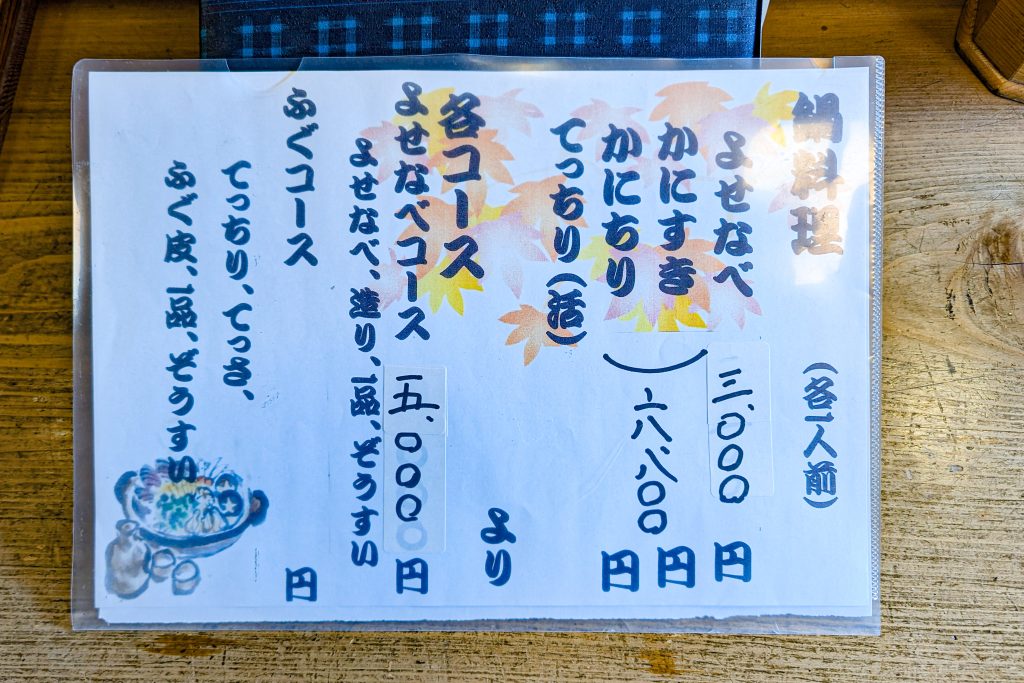 鍋料理 (各一人前)
よせなべ 三、〇〇〇円
かにすき 円
かにちり 六、八〇〇円
てっちり(活)
より
各コース
よせなべコース 五、〇〇〇円
よせなべ、造り、一品、ぞうすい
ふぐコース 円
てっちり、てっさ、
ふぐ皮、一品、ぞうすい